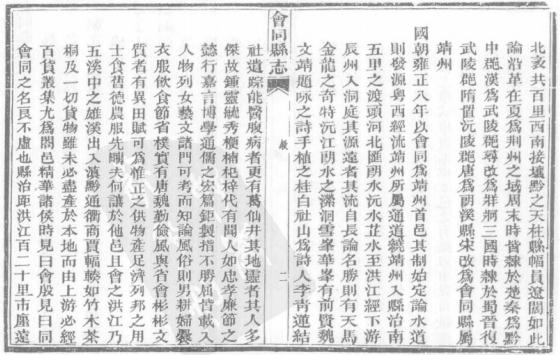 北袤共百里西南接壤黔之天柱縣幅員遼闊如此
論沿革在夏爲荊州之域周末時皆隸於楚秦爲黔
中郡漢爲武陵郡尋改爲牂牁三國時隸於蜀晉復
武陵郡隋置沅陵郡唐爲朗溪縣宋改爲會同縣屬
靖州
國朝雍正八年以會同爲靖州首邑其制始定論水道
則發源粵西經流靖州所屬通道靖州入縣治南
五里之渡頭河北匯朗水沅水芷水至洪江經下游
辰州入洞庭其源遠者其流自長論名勝則有天馬
金龍之奇特沅江朗水之瀠洄雪峯華峯有前賢魏
文靖題咏之詩手植之桂白社山爲詩人李靑蓮結
會同縣志
敍
二
社遺踪能醫腹病者更有葛仙井其地靈者其人多
傑故鍾靈毓秀楩楠杞梓代有聞人如忠孝廉節之
懿行嘉言博學通儒之宏篇鉅製指不勝屈皆載入
人物列女藝文諸門可考而知論風俗則男耕婦爨
衣服飲食節省樸質有唐魏勤儉風與省會彬彬文
質者有異田賦可爲惟正之供物產足濟列邦之用
士食舊德農服先疇夫何讓於他邑且會之洪江乃
五溪中之雄漢出入滇黔通衢商賈輻輳如竹木茶
桐及一切貨物雖未必盡產於本地而由上游必經
百貨叢集尤爲闔邑精華諸侯時見曰會殷見曰同
會同之名良不虛也縣治距洪江百二十里市廛遠